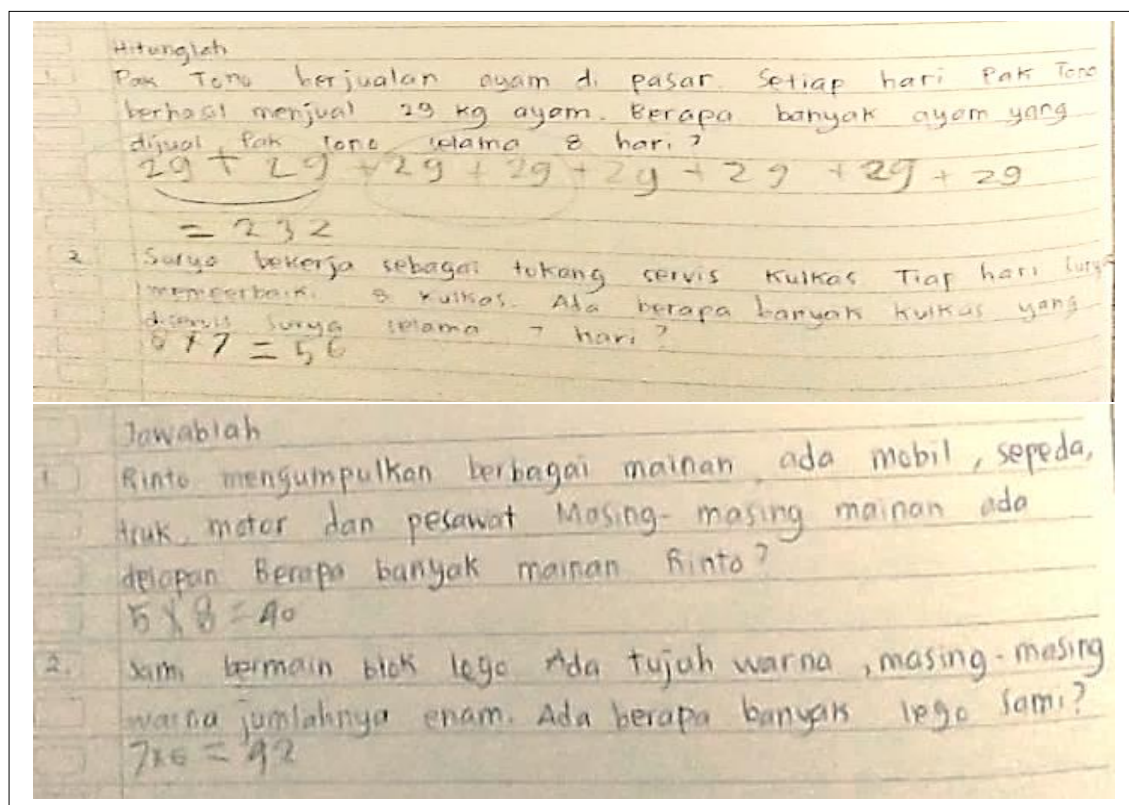 Hitunglah
1. Pak Tono berjualan ayam di pasar. Setiap hari Pak Tono
berhasil menjual 29 kg ayam. Berapa banyak ayam yang
dijual Pak Tono selama 8 hari?
29 + 29 + 29 + 29 + 29 + 29 + 29 + 29
= 232
2 Surya bekerja sebagai tukang servis kulkas Tiap hari Surya
memperbaiki 8 kulkas. Ada berapa banyak kulkas yang
diservis Surya selama 7 hari?
8 x 7 = 56
Jawablah
1. Rinto mengumpulkan berbagai mainan, ada mobil, sepeda,
truk, motor dan pesawat Masing-masing mainan ada
delapan Berapa banyak mainan Rinto?
5 x 8 = 40
2. Sami bermain blok lego Ada tujuh warna, masing-masing
warna jumlahnya enam. Ada berapa banyak lego Sami?
7x6 = 42